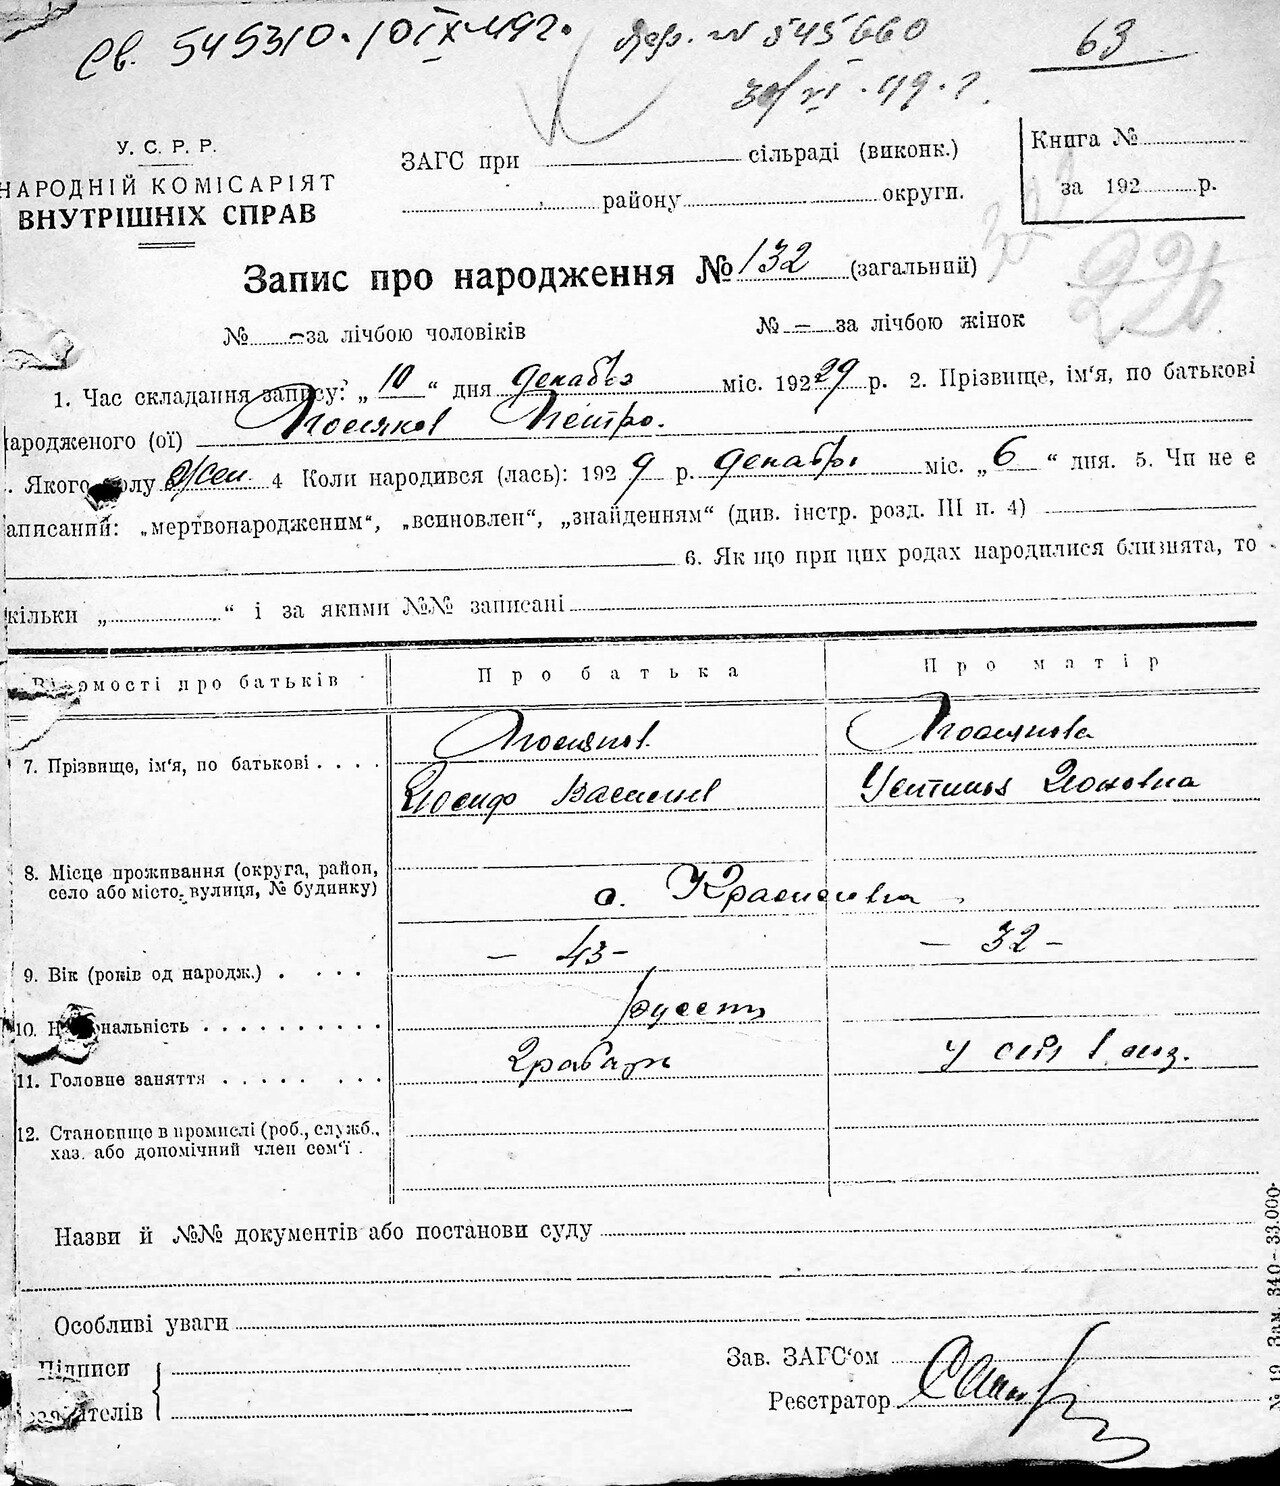 Св. 545310. 10 IX 49г. дер. № 545660 63
30/VI. 49. г.
У. С. Р. Р.
НАРОДНІЙ КОМІСАРІЯТ
ВНУТРІШНІХ СПРАВ
ЗАГС при сільраді (виконк.)
району округи.
Книга №
за 192 р.
226
Запис про народження № 132 (загальний)
№ – за лічбою чоловіків № – за лічбою жінок
1. Час складання запису: „ 10 “ дня декабрь міс. 192 29 р. 2. Прізвище, ім'я, по батькові
народженого (ої) Петро.
. Якого полу 4 Коли народився (лась): 192 9 р. декабрь міс. „ 6 “ дня. 5. Чи не є
аписаний: „мертвонародженим“, „всиновлен“, „знайденням“ (див. інстр. розд. III п. 4)
6. Як що при цих родах народилися близнята, то
кільки „ “ і за якими №№ записані
Відомості про батьків Про батька Про матір
7. Прізвище, ім'я, по батькові . . . .
Иосиф Васильев Устинья Ионовна
8. Місце проживання (округа, район,
село або місто, вулиця, № будинку)
с.
9. Вік (років од народж.) . . . . – 43 – – 32 –
10. Національність . . . . . . . . . .
11. Головне заняття . . . . . . . . Грабарь
12. Становище в промислі (роб., служб.,
хаз. або допомічний член сем'ї .
Назви й №№ документів або постанови суду
Особливі уваги
Підписи
заявителів
Зав. ЗАГС'ом
Реєстратор
№ 19 Зам. 340–33.000